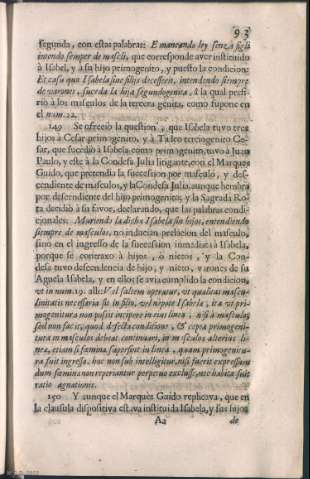 93
segunda, con estas palabras: E mancando ley senza figli
intendo semper de mascli, que corresponde aver instituido
à Isabel, y à su hijo primogenito, y puesto la condicion:
Et casu quo Isabela sine filijs decesserit, intendendo siempre
de varones, suceda la hija segundogenita, à la qual prefi-
rió à los masculos de la tercera genita, como supone en
el num.22.
149 Se ofreciò la question, que Isabela tuvo tres
hijos à Cesar primogenito, y à Taleo tercicogenito Ce-
sar, que sucediò à Isabela como primogenito, tuvo à Juan
Paulo, y este à la Condesa Julia litigante, con el Marques
Guido, que pretendia la succession por masculo, y des-
cendiente de masculos, y la Condesa Julia, aunque hembra
por descendiente del hijo primogenito; y la Sagrada Ro-
ta decidiò à su favor, declarando, que las palabras condi-
cionales: Muriendo la dicha Isabela sin hijos, entendiendo
siempre de masculos, no inducian prelacion del masculo,
sino en el ingresso de la succession inmediata à Isabela,
porque se contraxo à hijos, ò nietos, y la Con-
desa tuvo descendencia de hijo, y nieto, varones de su
Aguela Isabela, y en ellos se avia cumplido la condicion,
vt in num.19. alli: Vel saltem operatur, vt qualitas mascu-
linitatis necessaria sit in filio, vel nepote Isabela, ita vt pri-
mogenitura non possit incipere in eius linea, nisi à masculo,
sed non facit, quod defecta condicione, & cepta primogeni-
tura in masculos debeat continuari, in masculos alterius li-
nea, etiam si femina superfint in linea, quam primogenitu-
ra fuit ingressa, hoc non sub intelligitur, nisi fuerit expressum
dum fœmina non reperiantur perpetuo exclusse, nec habita fuit
ratio agnationis.
150 Y aunque el Marques Guido replicava, que en
la clausula dispositiva estava instituida Isabela, y sus hijos
Aa de